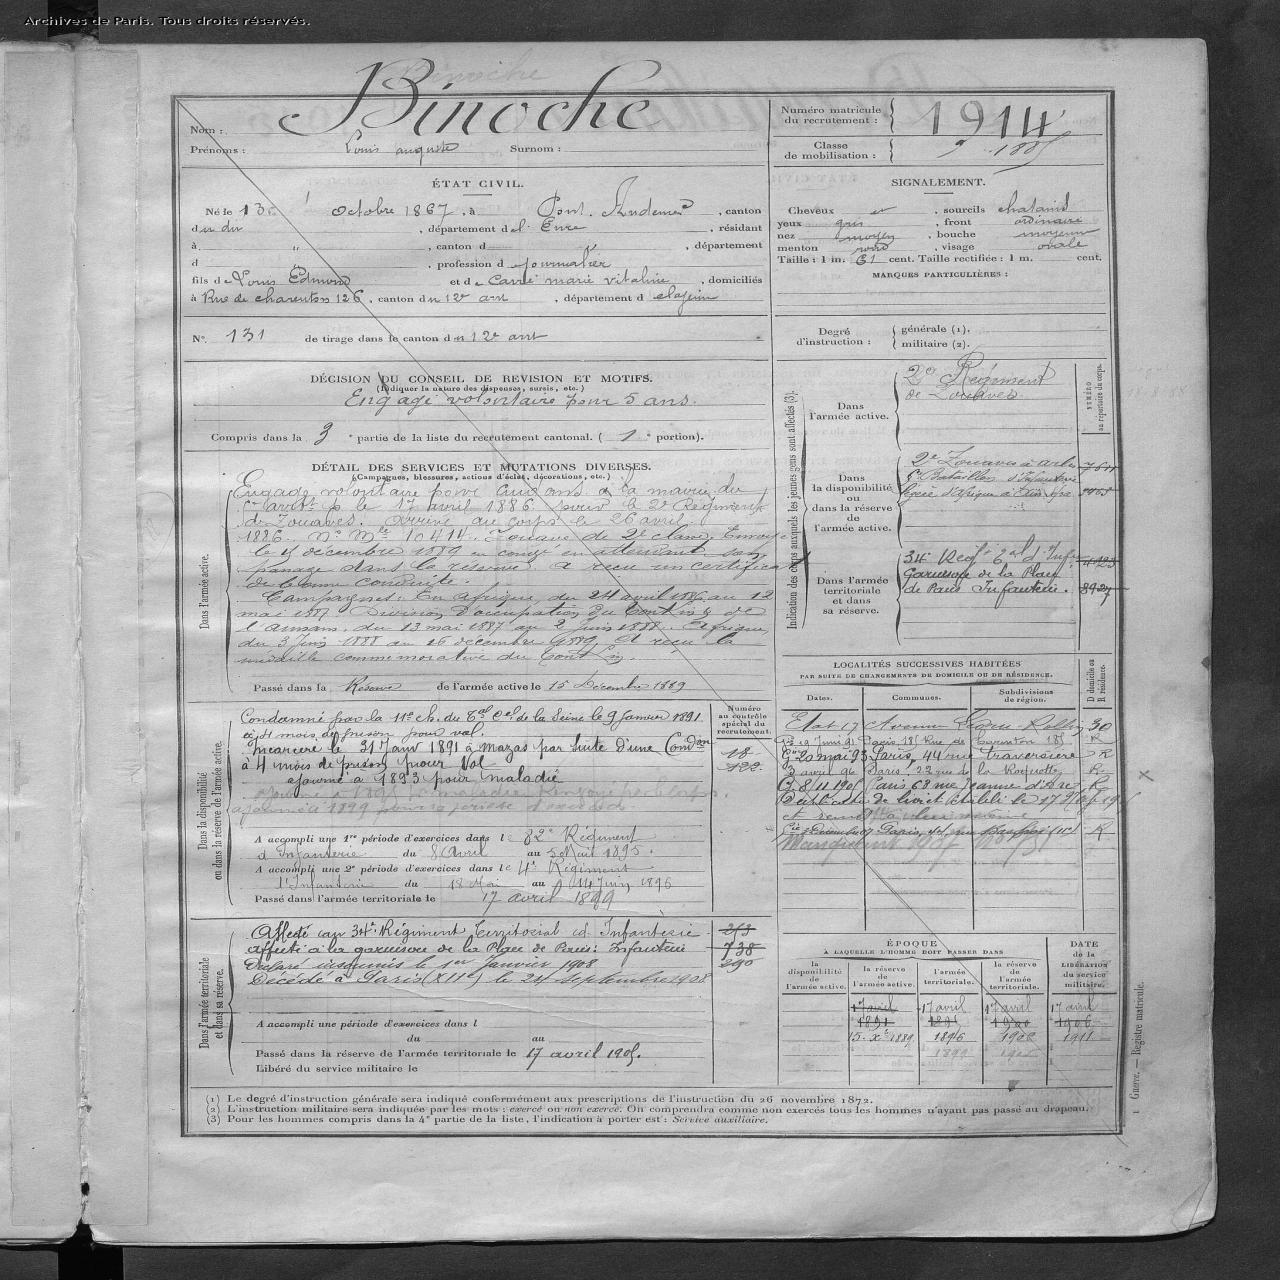 Archives de Paris. Tous droits réservés.
Nom : Binoche
Prénoms : Louis auguste Surnom :
Numéro matricule du recrutement : 1914
Classe de mobilisation :
ÉTAT CIVIL.
Né le 13 octobre 1867, à Pont. Audemer, canton
d u dit, département d l'Eure, résidant
à " , canton d , département
d " , profession d e journalier
fils d e Louis Edmond et d e Carré marie vitaline, domiciliés
à Rue de charenton 126, canton d u 12e arrt, département d e la Seine
N°. 131 de tirage dans le canton d u 12e arrt
SIGNALEMENT.
Cheveux et, sourcils chatains
yeux gris, front ordinaire
nez moyen, bouche moyenne
menton rond, visage ovale
Taille : 1 m. 61 cent. Taille rectifiée : 1 m. cent.
MARQUES PARTICULIÈRES :
Degré d'instruction : générale (1).
militaire (2).
DÉCISION DU CONSEIL DE REVISION ET MOTIFS.
(Indiquer la nature des dispenses, sursis, etc.)
Engagé volontaire pour 5 ans.
Compris dans la 3e partie de la liste du recrutement cantonal. ( 1e portion).
DÉTAIL DES SERVICES ET MUTATIONS DIVERSES.
(Campagnes, blessures, actions d'éclat, décorations, etc.)
Dans l'armée active.
Engagé volontaire pour cinq ans à la mairie du
le 17 avril 1886 pour le 2e Régiment
de Zouaves. Arrivé au corps le 26 avril
1886. No Mle 10414. Zouave de 2e classe. Envoyé
le 4 décembre 1889 en congé en attendant son
passage dans la réserve. A reçu un certificat
de bonne conduite.
Campagnes: En Afrique du 24 avril 1886 au 12
mai 1887. Division d'occupation du Tonkin & de
l'Annam, du 13 mai 1887 au 2 Juin 1888. Afrique,
du 3 Juin 1888 au 16 décembre 1889. A reçu la
médaille commémorative du Tonkin.
Passé dans la Réserve de l'armée active le 15 Décembre 1889
Indication des corps auxquels les jeunes gens sont affectés (3).
NUMÉRO au répertoire du corps.
Dans l'armée active.
2e Régiment
de Zouaves
Dans la disponibilité ou dans la réserve de l'armée active.
2e Zouaves à
Bataillon d'Infanterie
légère d'Afrique à
Dans l'armée territoriale et dans sa réserve.
34e Regt Tal d'Infie
Garnison de la Place
de Paris Infanterie.
LOCALITÉS SUCCESSIVES HABITÉES
PAR SUITE DE CHANGEMENTS DE DOMICILE OU DE RÉSIDENCE.
Dates. Communes. Subdivisions de région. D domicile ou R résidence.
Avenue Ledru-Rollin 30
19 Juin 91 Paris 185 Rue de Charenton 185 R
20 mai 93 Paris, 44 rue Traversière R
3 avril 96 Paris. 22 rue de la Roquette R
8/11 1905 Paris 68 rue Jeanne d'Arc R
Duplicata de livret établi le 17
Paris, R
Dans la disponibilité ou dans la réserve de l'armée active.
Numéro au contrôle spécial du recrutement.
Condamné par la 11e ch. du Tal Cel de la Seine le 9 Janvier 1891
à 4 mois de prison pour vol.
Incarcéré le 21 Janv 1891 à Mazas par suite d'une Condon
à 4 mois de prison pour Vol
ajourné à 1893 pour maladie
A accompli une 1re période d'exercices dans l e 82e Régiment
d'Infanterie du 8 Avril au 5 Mai 1895.
A accompli une 2e période d'exercices dans l e 4e Régiment
d'Infanterie du 18 Mai au 14 Juin 1896
Passé dans l'armée territoriale le 17 avril 1899
Dans l'armée territoriale et dans sa réserve.
Affecté au 34e Régiment Territorial d'Infanterie 253
Affecté à la garnison de la Place de Paris: Infanterie 738
Déclaré insoumis le 1er Janvier 1908 290
Décédé à Paris (XIIe) le 24 septembre 1908
A accompli une période d'exercices dans l
du au
Passé dans la réserve de l'armée territoriale le 17 avril 1905.
Libéré du service militaire le
ÉPOQUE
À LAQUELLE L'HOMME DOIT PASSER DANS
DATE de la LIBÉRATION du service militaire.
la disponibilité de l'armée active. la réserve de l'armée active. l'armée territoriale. la réserve de l'armée territoriale.
17 avril 17 avril 17 avril 17 avril
1891 1891 1900 1906
15 Xe 1889 1896 1906 1911
(1) Le degré d'instruction générale sera indiqué conformément aux prescriptions de l'instruction du 26 novembre 1872.
(2) L'instruction militaire sera indiquée par les mots : exercé ou non exercé. On comprendra comme non exercés tous les hommes n'ayant pas passé au drapeau.
(3) Pour les hommes compris dans la 4e partie de la liste, l'indication à porter est : Service auxiliaire.
1 Guerre. — Registre matricule.